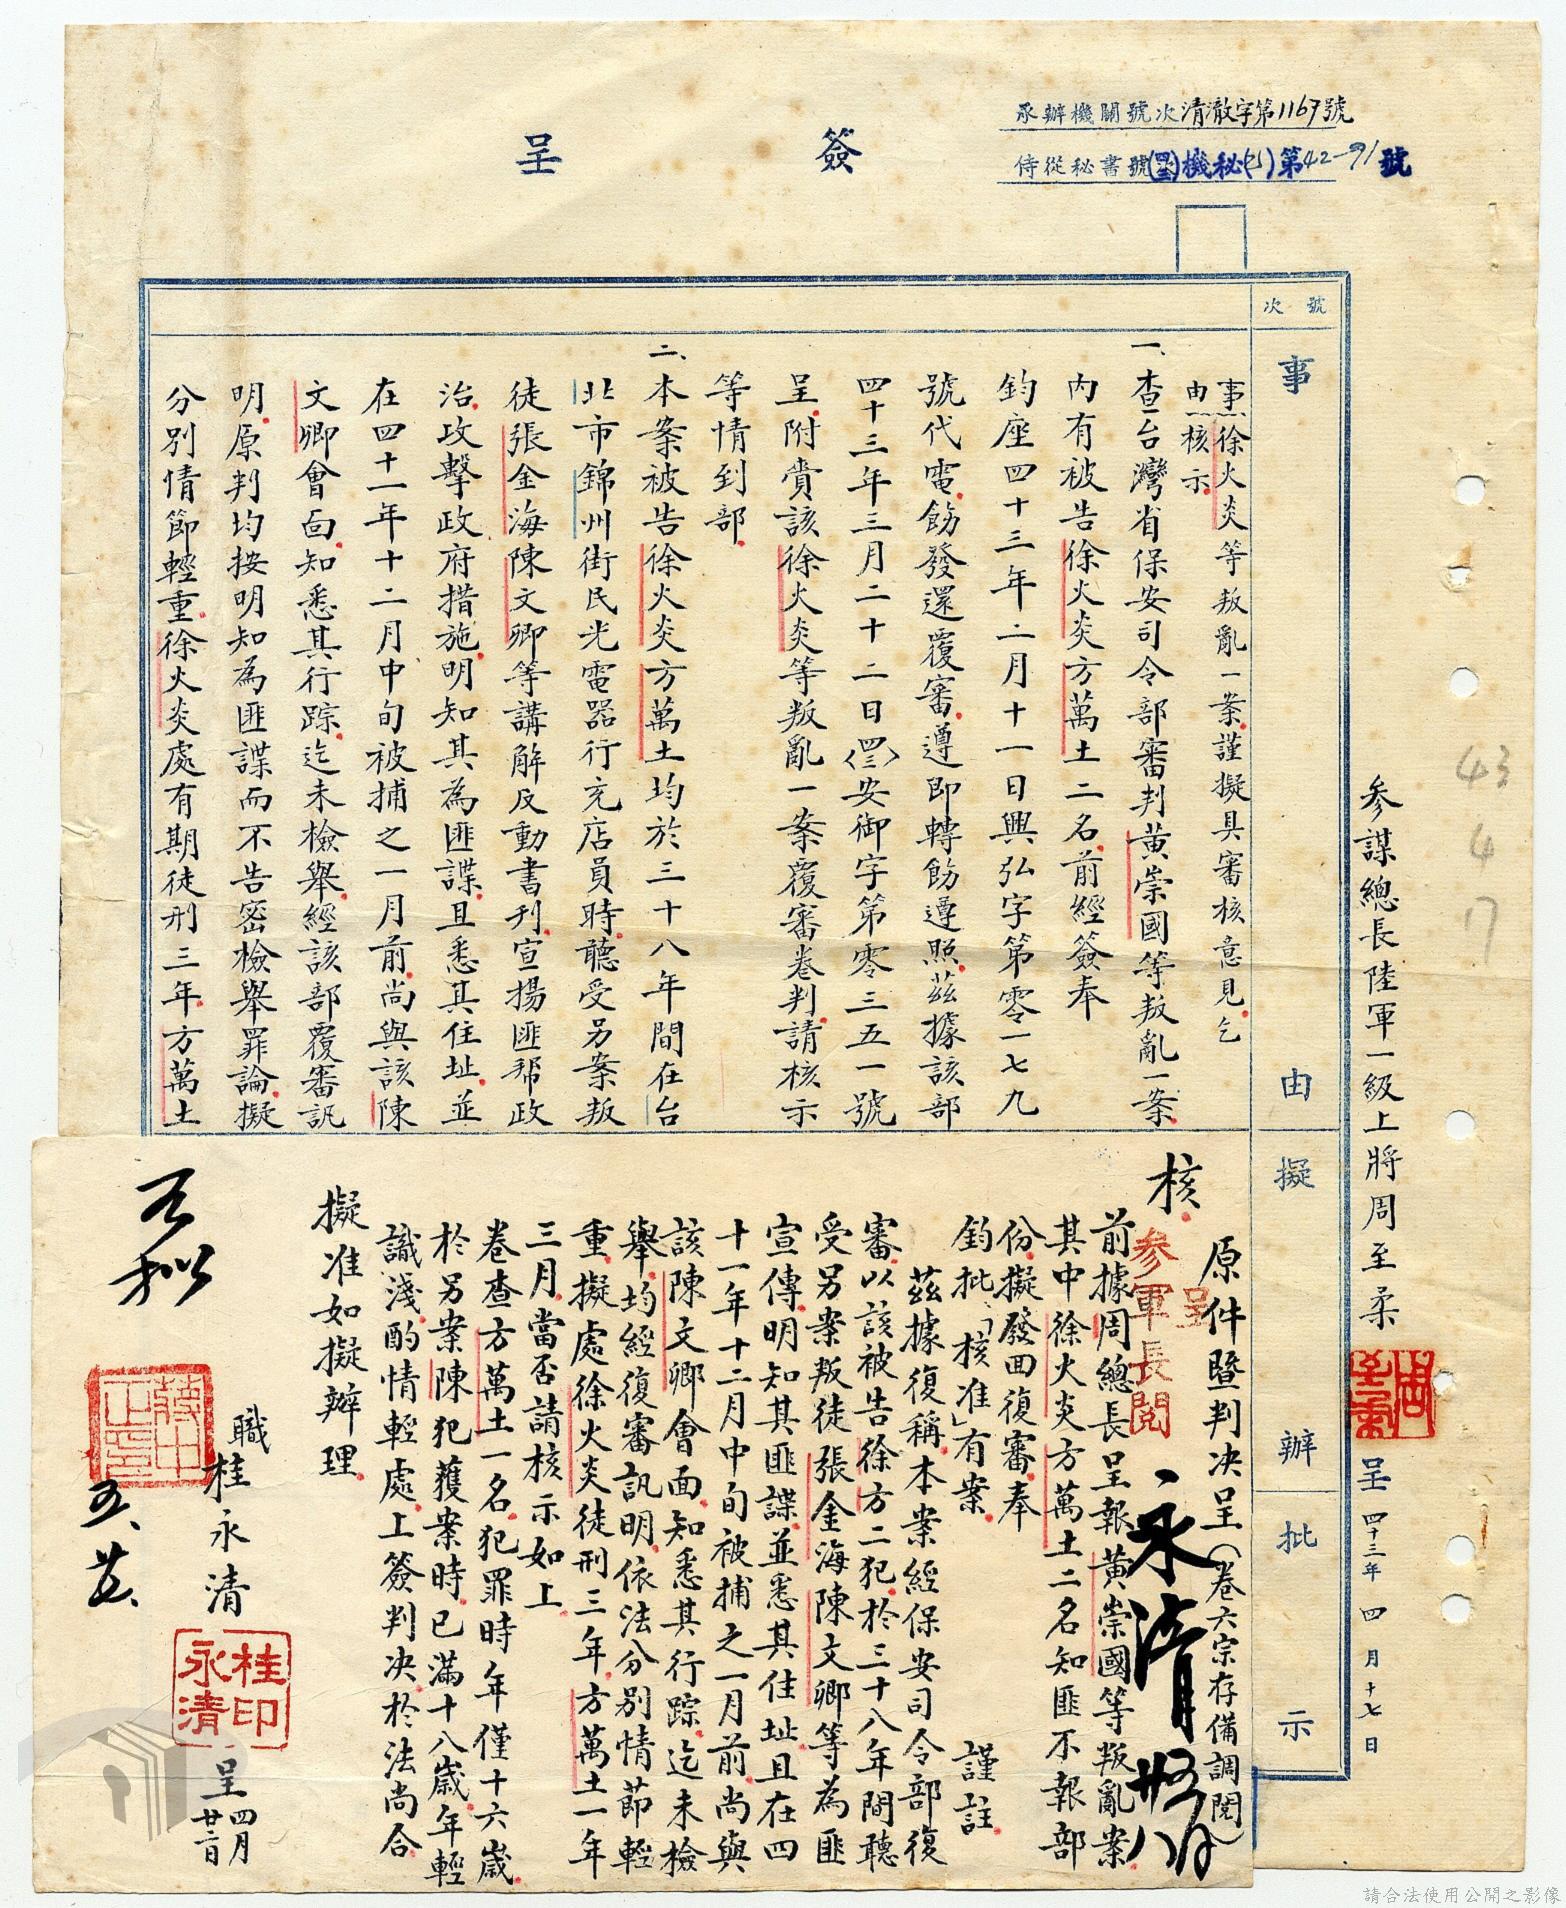 簽呈
承辦機關號次清澈字第1167號
侍從秘書號機秘(乙)第42-91號
號次
事由
擬辦
批示
事由：徐火炎等叛亂一案謹擬具審核意見乞
核示
一、查台灣省保安司令部審判黃崇國等叛亂一案
內有被告徐火炎方萬土二名前經簽奉
鈞座四十三年二月十一日興弘字第零一七九
號代電飭發還覆審遵即轉飭遵照茲據該部
四十三年三月二十二日(四三)安御字第零三五一號
呈附賫該徐火炎等叛亂一案覆審卷判請核示
等情到部
二、本案被告徐火炎方萬土均於三十八年間在台
北市錦州街民光電器行充店員時聽受另案叛
徒張金海陳文卿等講解反動書刊宣揚匪幫政
治攻擊政府措施明知其為匪諜且悉其住址並
在四十一年十二月中旬被捕之一月前尚與該陳
文卿會面知悉其行踪迄未檢舉經該部覆審訊
明原判均按明知為匪諜而不告密檢舉罪論擬
分別情節輕重徐火炎處有期徒刑三年方萬土
參謀總長陸軍一級上將周至柔
周至柔
呈四十三年四月十七日
43 4 17
原件暨判决呈(卷六宗存備調閱)
核
呈
參軍長閱
前據周總長呈報黃崇國等叛亂案
其中徐火炎方萬土二名知匪不報部
份擬發回復審奉
鈞批「核准」有案
謹註
茲據復稱本案經保安司令部復
審以該被告徐方二犯於三十八年間聽
受另案叛徒張金海陳文卿等為匪
宣傳明知其匪諜並悉其住址且在四
十一年十二月中旬被捕之一月前尚與
該陳文卿會面知悉其行踪迄未檢
舉均經復審訊明依法分別情節輕
重擬處徐火炎徒刑三年方萬土一年
三月當否請核示如上
卷查方萬土一名犯罪時年僅十六歲
於另案陳犯獲案時已滿十八歲年輕
識淺酌情輕處上簽判决於法尚合
擬准如擬辦理
職桂永清
桂永清印
呈四月廿二日
如擬
蔣中正印
請合法使用公開之影像